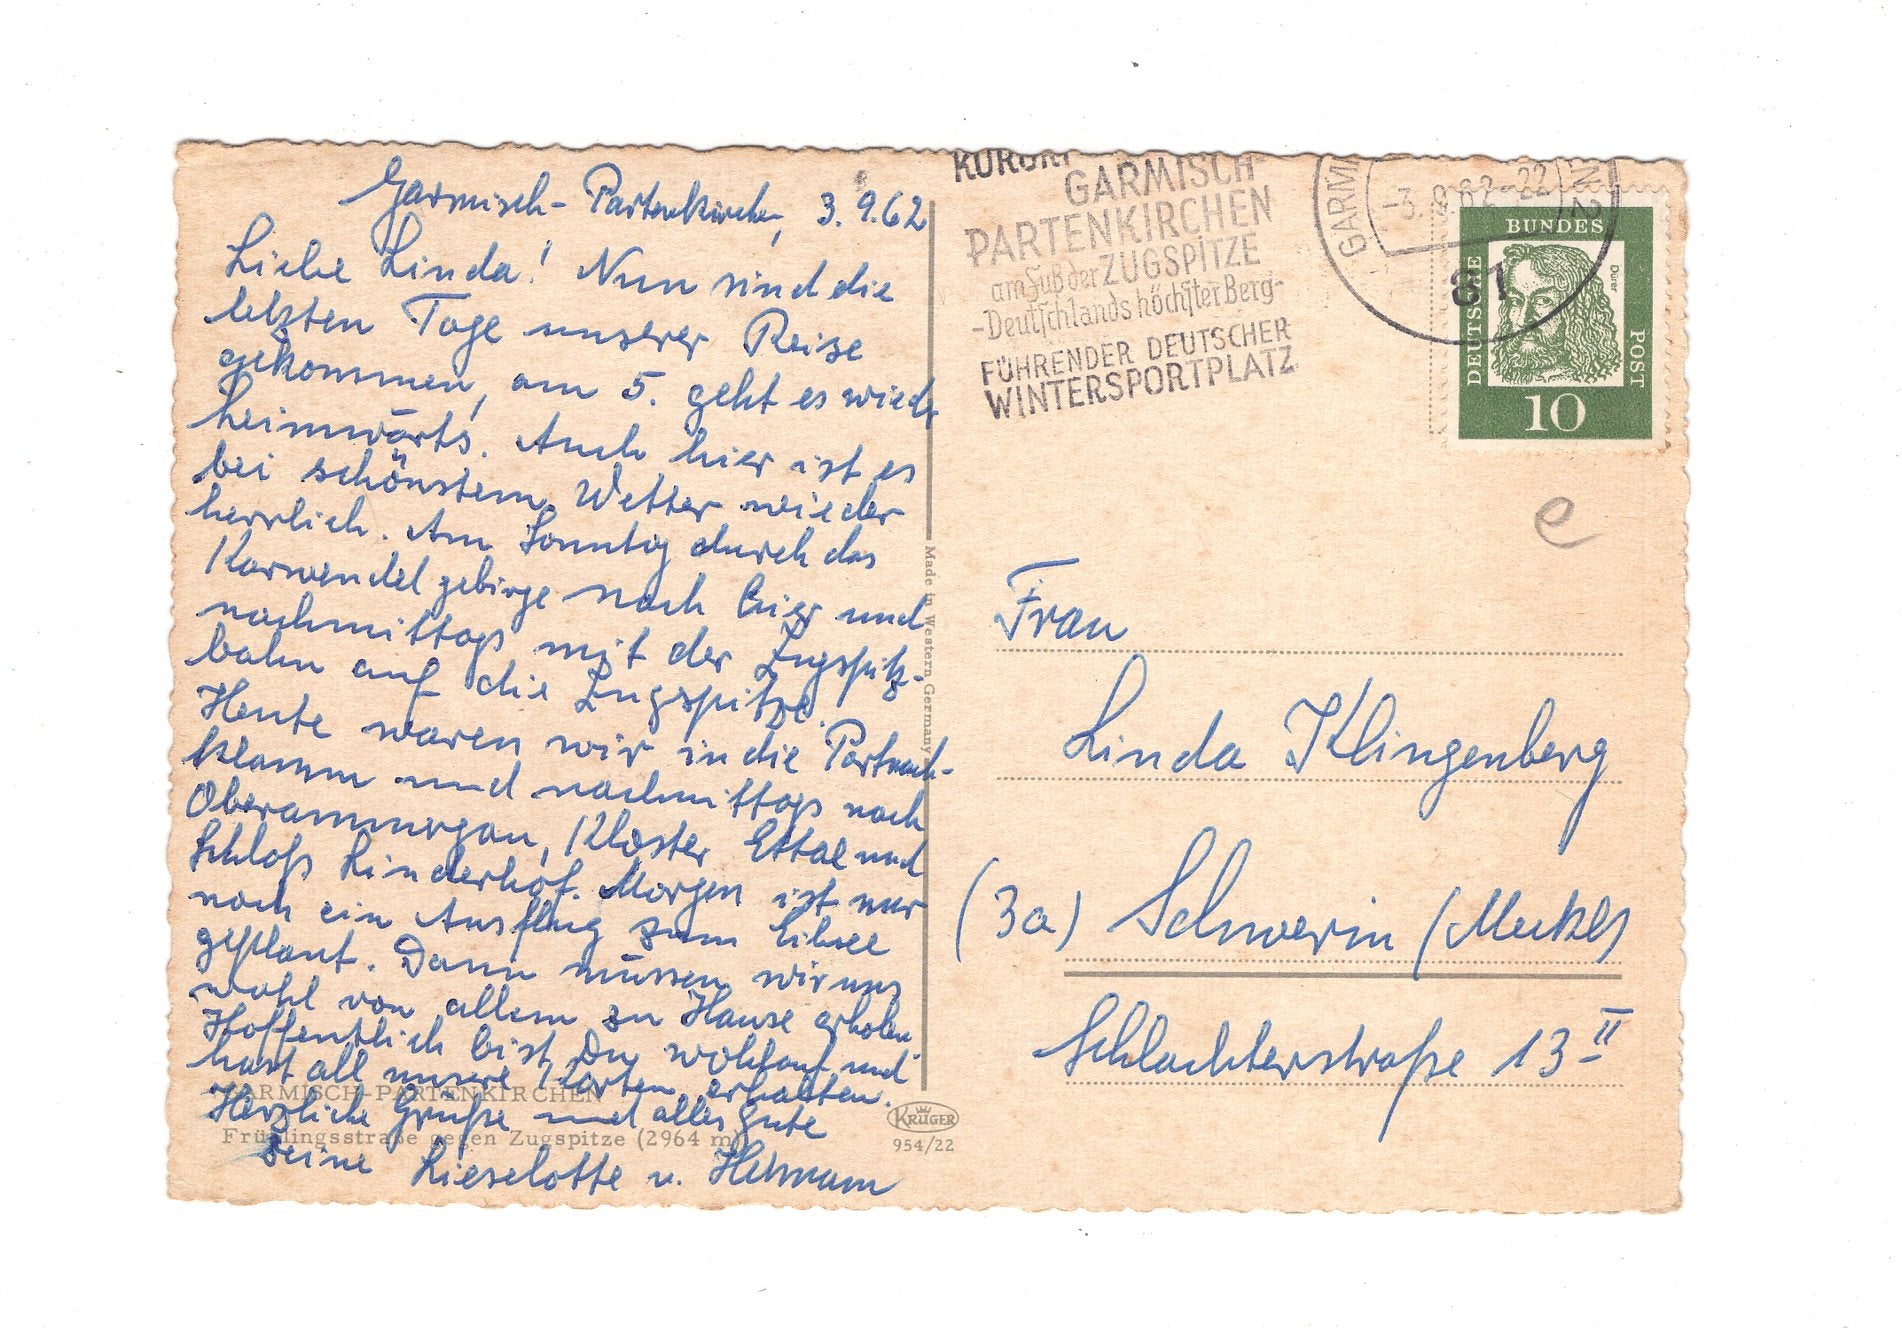 Garmisch-Partenkirchen, 3.9.62
Liebe Linda! Nun sind die
letzten Tage unserer Reise
gekommen, am 5. geht es wieder
heimwärts. Auch hier ist es
bei schönstem Wetter wieder
herrlich. Am Sonntag durch das
Karwendelgebirge nach hier und
nachmittags mit der Zugspitz-
bahn auf die Zugspitze.
Heute waren wir in die Partnach-
klamm und nachmittags nach
Oberammergau, Kloster Ettal und
Schloß Linderhof. Morgen ist nur
noch ein Ausflug zum Eibsee
geplant. Dann müssen wir uns
wohl von allem zu Hause erholen.
Hoffentlich bist Du wohlauf und
hast all unsere Karten erhalten.
Herzliche Grüße und alles Gute
Deine Lieselotte u. Hermann
GARMISCH-PARTENKIRCHEN
Frühlingsstraße gegen Zugspitze (2964 m)
Made in Western Germany
KRÜGER
954/22
KURORT
GARMISCH-
PARTENKIRCHEN
am Fuß der ZUGSPITZE
-Deutschlands höchster Berg-
FÜHRENDER DEUTSCHER
WINTERSPORTPLATZ
GARMI
-3.9.62-22
81
DEUTSCHE
BUNDES
POST
Dürer
10
e
Frau
Linda Klingenberg
(3a) Schwerin (Meckl)
Schlachterstraße 13 II